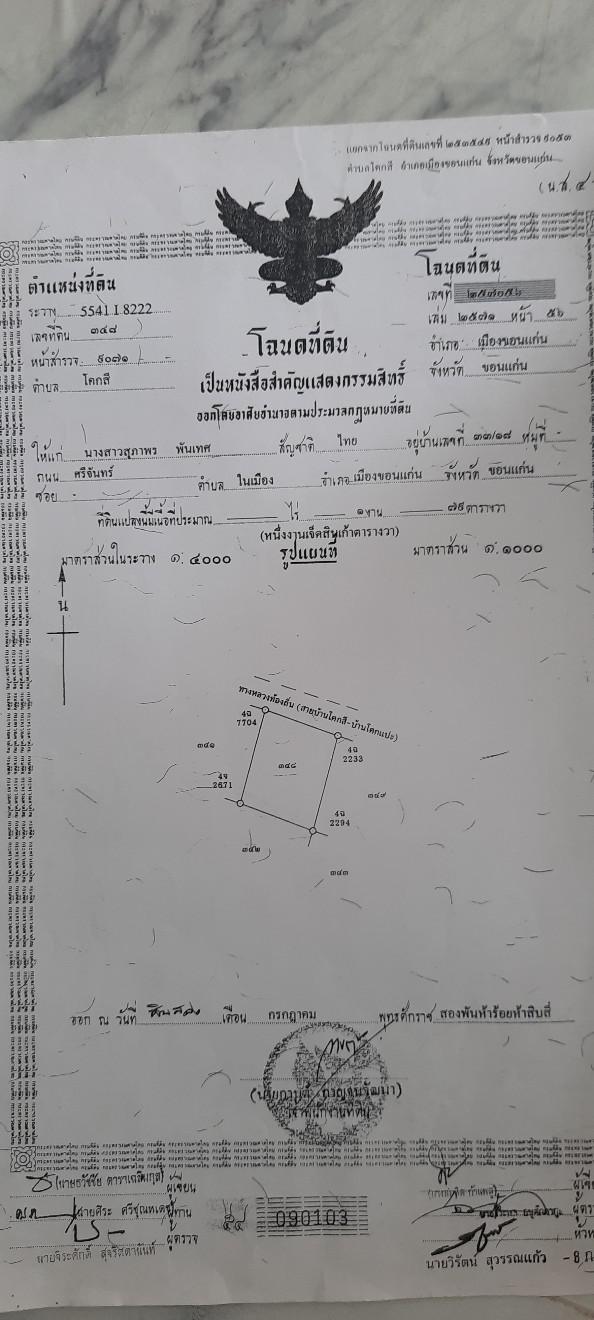 แยกจากโฉนดที่ดินเลขที่ ๒๕๓๕๔๕ หน้าสำรวจ ๙๐๕๓
ตำบลโคกสี อำเภอเมืองขอนแก่น จังหวัดขอนแก่น
(น.ส. ๔
ตำแหน่งที่ดิน
ระวาง 5541 I 8222
เลขที่ดิน ๓๔๘
หน้าสำรวจ ๙๐๗๑
ตำบล โคกสี
โฉนดที่ดิน
เลขที่
เล่ม ๒๕๗๑ หน้า ๕๖
อำเภอ เมืองขอนแก่น
จังหวัด ขอนแก่น
โฉนดที่ดิน
เป็นหนังสือสำคัญแสดงกรรมสิทธิ์
ออกโดยอาศัยอำนาจตามประมวลกฎหมายที่ดิน
ให้แก่ นางสาวสุภาพร พันเทศ สัญชาติ ไทย อยู่บ้านเลขที่ ๓๓/๑๘ หมู่ที่ -
ถนน ศรีจันทร์
ซอย - ตำบล ในเมือง อำเภอ เมืองขอนแก่น จังหวัด ขอนแก่น
ที่ดินแปลงนี้มีเนื้อที่ประมาณ ไร่ ๑ งาน ๗๙ ตารางวา
(หนึ่งงานเจ็ดสิบเก้าตารางวา)
มาตราส่วนในระวาง ๑: ๔๐๐๐ รูปแผนที่ มาตราส่วน ๑: ๑๐๐๐
น
ทางหลวงท้องถิ่น (สายบ้านโคกสี-บ้านโคกแปะ)
4ฉ
7704
4ฉ
2233
๓๔๑
๓๔๘
4จ
2671
๓๔๙
4ฉ
2294
๓๔๒
๓๔๓
ออก ณ วันที่ เดือน กรกฎาคม พุทธศักราช สองพันห้าร้อยห้าสิบสี่
เจ้าพนักงานที่ดิน
ผู้เขียน
ผู้ทาน
ผู้ตรวจ
นายจิระศักดิ์
090103
นายวิรัตน์ สุวรรณแก้ว